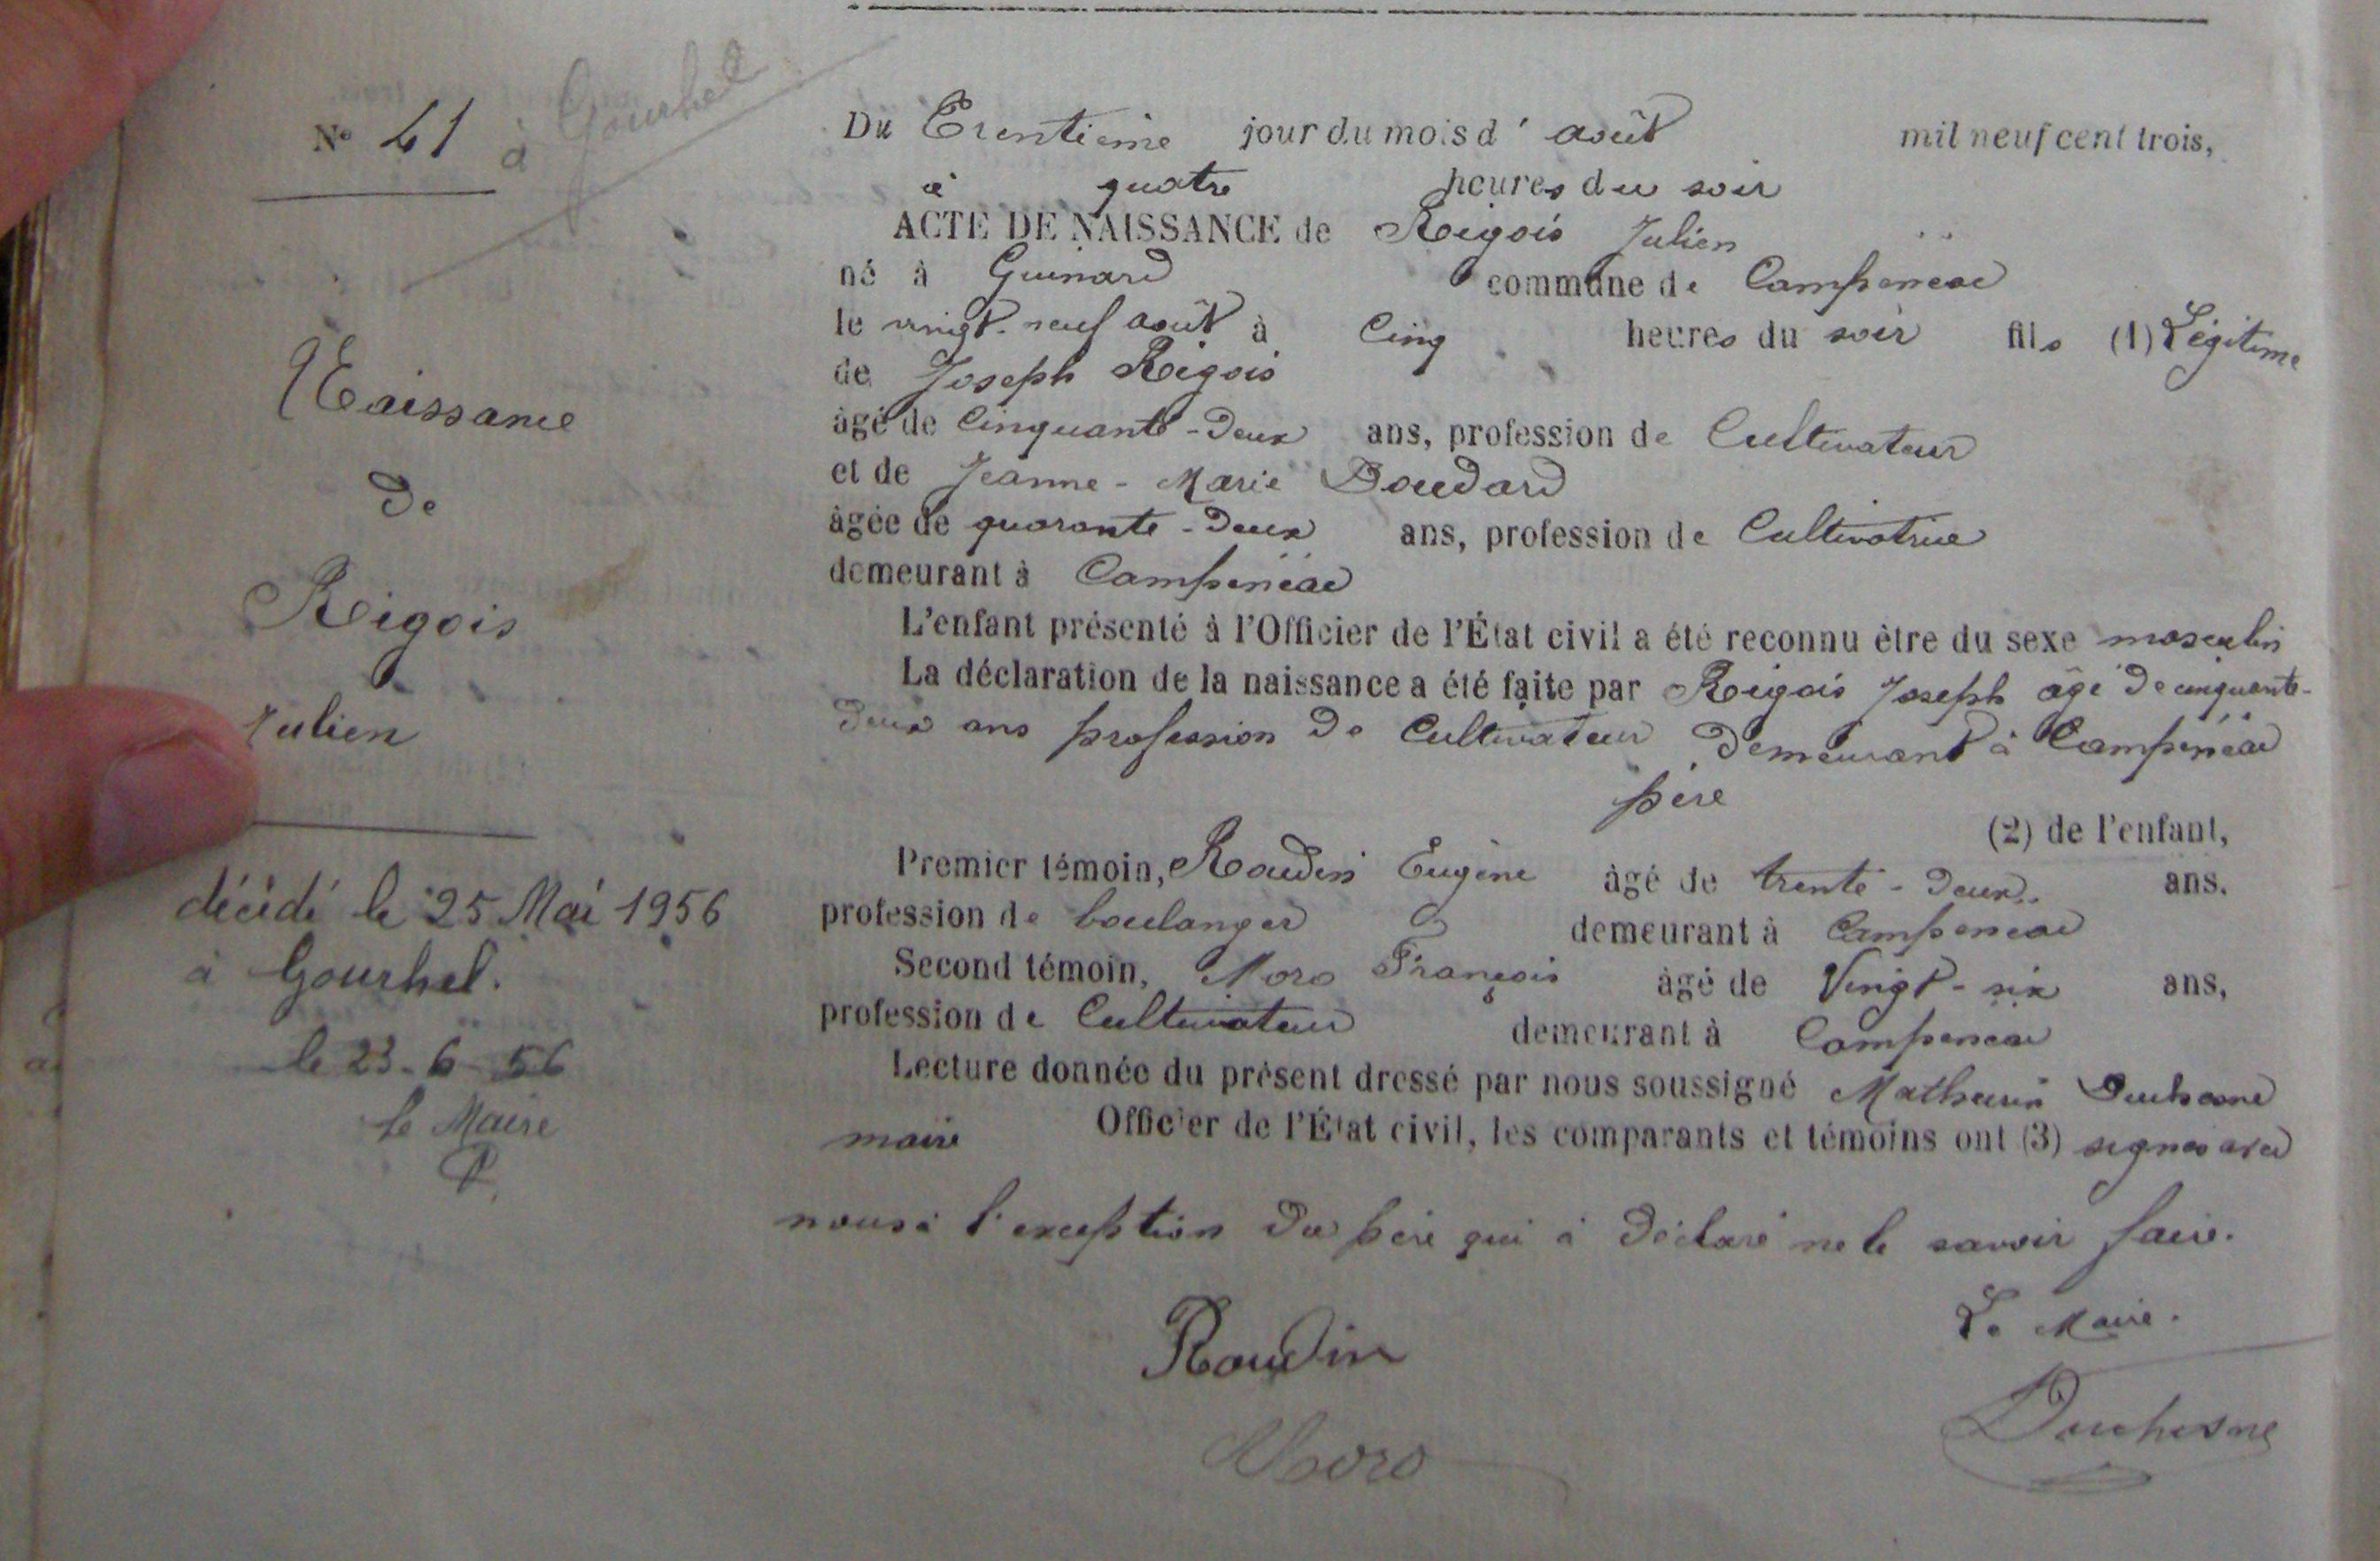 N° 41
à Gourhel
Naissance
de
Reigois
Julien
décédé le 25 Mai 1956
à Gourhel.
le 23-6-56
le Maire
Du Trentième jour du mois d'août mil neuf cent trois,
à quatre heures du soir
ACTE DE NAISSANCE de Reigois Julien
né à Guinard commune de Campénéac
le vingt-neuf août à Cinq heures du soir fils (1) Légitime
de Joseph Reigois
âgé de Cinquante-deux ans, profession de Cultivateur
et de Jeanne-Marie Boudard
âgée de quarante-deux ans, profession de Cultivatrice
demeurant à Campénéac
L'enfant présenté à l'Officier de l'État civil a été reconnu être du sexe masculin
La déclaration de la naissance a été faite par Reigois Joseph âgé de cinquante-
deux ans profession de Cultivateur demeurant à Campénéac
père
(2) de l'enfant,
Premier témoin, Raudin Eugène âgé de trente-deux ans.
profession de boulanger demeurant à Campénéac
Second témoin, Moro François âgé de Vingt-six ans,
profession de Cultivateur demeurant à Campénéac
Lecture donnée du présent dressé par nous soussigné Mathurin Duchesne
maire Officier de l'État civil, les comparants et témoins ont (3) signés avec
nous à l'exception du père qui à déclaré ne le savoir faire.
Le Maire.
Raudin
Duchesne
Moro